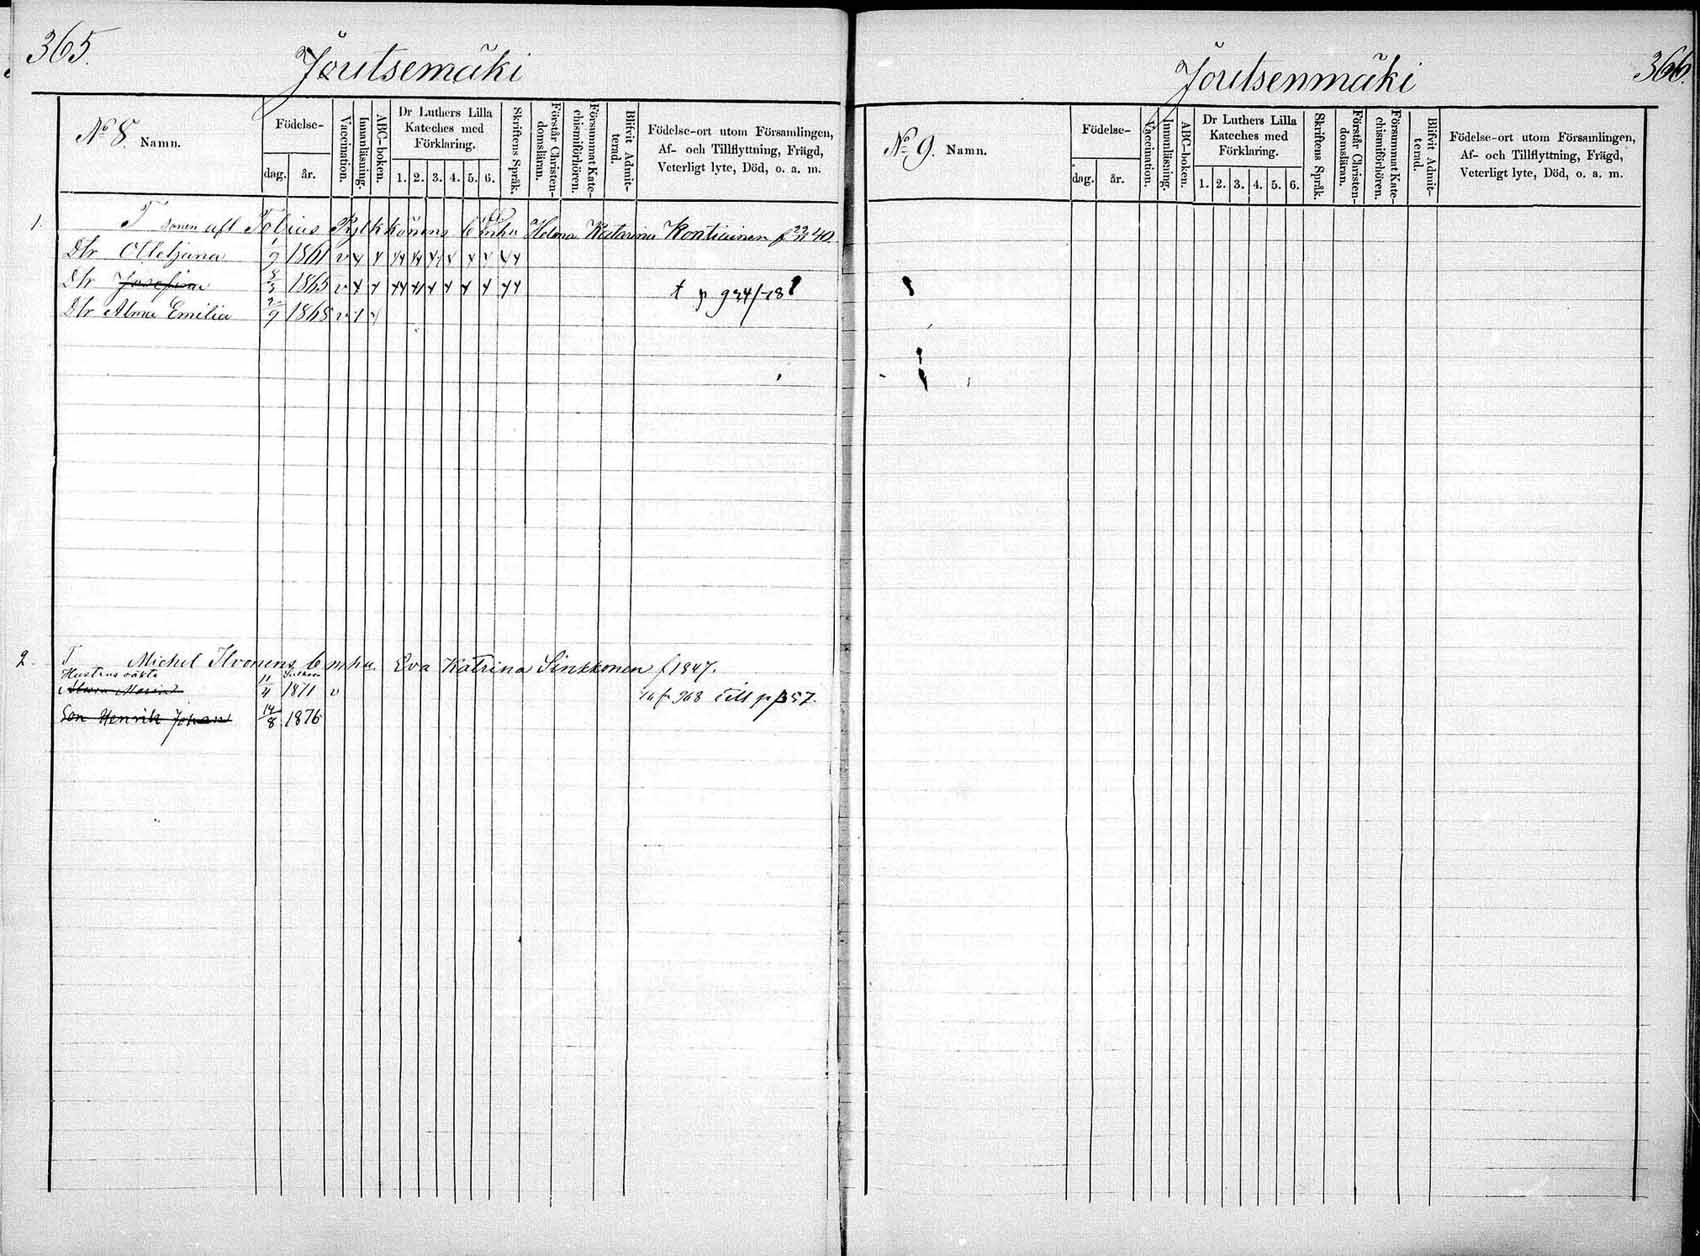 365.
Joutsemäki
No 8. Namn.
Födelse-
dag. år.
Vaccination.
Innanläsning.
ABC-boken.
Dr Luthers Lilla
Kateches med
Förklaring.
1. 2. 3. 4. 5. 6.
Skriftens Språk.
Förstår Christen-
domsläran.
Försummat Kate-
chismiförhören.
Blifvit Admit-
terad.
Födelse-ort utom Församlingen,
Af- och Tillflyttning, Frägd,
Veterligt lyte, Död, o. a. m.
1. T sonen afl Tobias Enka Helena Katarina Kontiainen f 40.
Dtr 9 1861 v
Dtr Josefina 1865 v † p 934/78
Dtr Alma Emilia 9 1868 v
2. T Michel Ilvonens b m hu. Eva Katrina Sinkkonen f 1847.
Hustrus oäkta
11/4 1871 v 968 till p 357.
Son Henrik Johan 14/8 1876
366.
Joutsenmäki
No 9. Namn.
Födelse-
dag. år.
Vaccination.
Innanläsning.
ABC-boken.
Dr Luthers Lilla
Kateches med
Förklaring.
1. 2. 3. 4. 5. 6.
Skriftens Språk.
Förstår Christen-
domsläran.
Försummat Kate-
chismiförhören.
Blifvit Admit-
terad.
Födelse-ort utom Församlingen,
Af- och Tillflyttning, Frägd,
Veterligt lyte, Död, o. a. m.